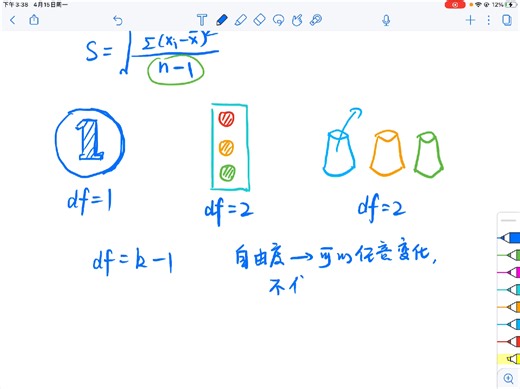 下午3:38 4月15日周一
12%
S = √Σ(xᵢ-x̄)²/n-1
1
df=1
df=2
df=2
df=k-1
自由度→可以任意变化,
不